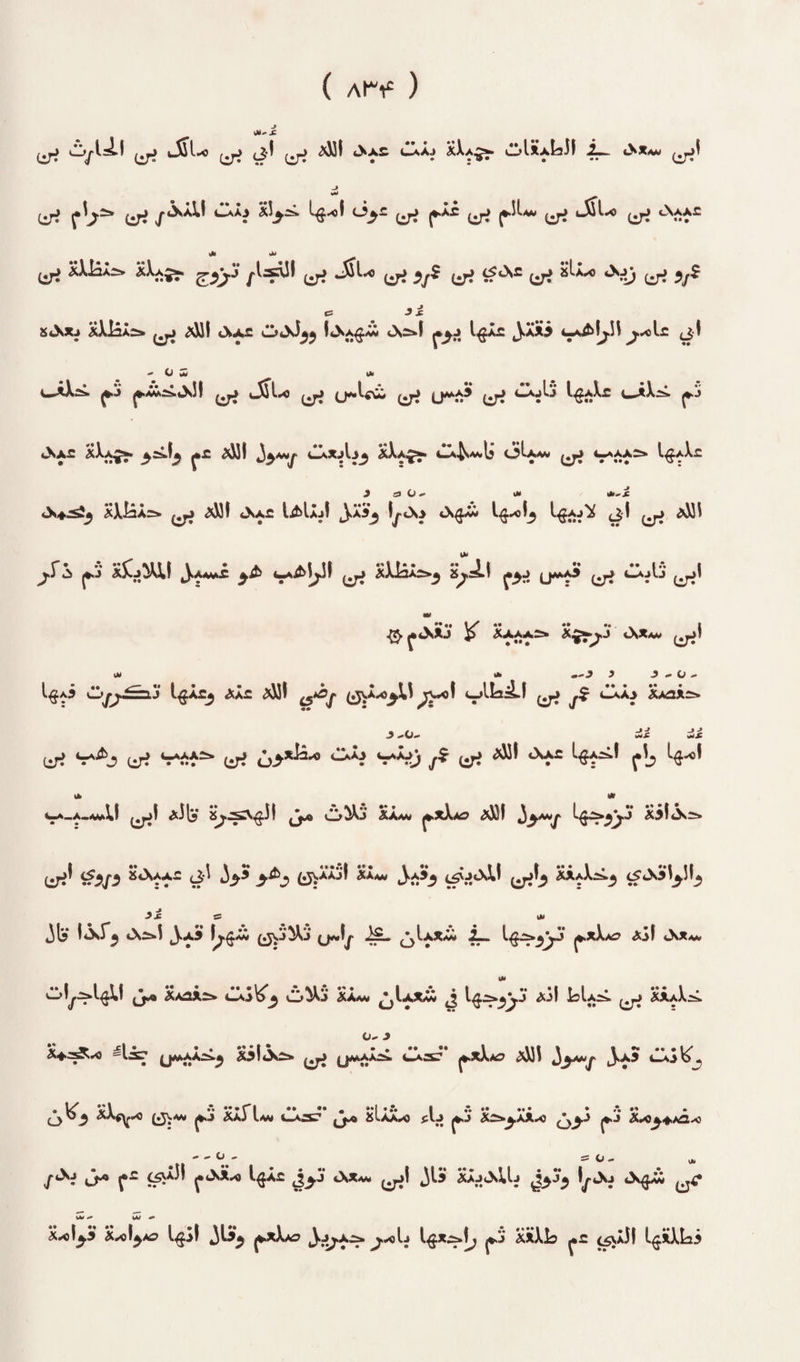 ( ٨٣٤ )
ابن سعد في الطبقات جميلة بنت عبد الله بن أُبَيّ بن مالك بن الحارث بن
عبيد بن مالك بن سالم بن غنم بن عوف امها خولة بنت المنذر بن حرام بن
عمرو بن زيد مناة بن عدي بن عمرو بن مالك بن النجار تزوج جميلة حنظلة بن
ابي عامر الراهب فقتل عنها يوم أُحُد شهيدا وولدت عبد الله بن حنظلة بعده
ثم خلف عليها ثابت بن قيس بن شماس بن مالك بن الدخشم ثم خلف
عليها حبيب بن سياف فاسلمت جميلة وبايعت رسول الله عم واخو جميلة عبد
الله بن أبي لابيها وامها شهد بدرا وقتل ابناها عبد الله بن حنظلة ومحمد
ابن ثابت بن قيس يوم الحرة وحنظلة بن الراهب هو غسيل الملايكة ثم ذكر
ابن سعد ترجمة حبيبة كما تقدم
حفصة بنت عمر بن الخطاب امير المومنين رضي الله عنه وعنها تكررت فيها
امها وام اخيها عبد الله بن عمر زينب بنت مظعون بن حبيب بن وهب بن
حذافة تزوجها رسول الله صلعم سنة ثلاث من الهجرة قاله ابن المسيب
والواقدي وخليفة وابن المديني وقيل سنة اثنتين وهو قول ابي عبيدة وروي ابن
سعد انه صلعم تزوجها في شعبان على راس ثلاثين شهرا قبل أُحُد وكذا قال
خليفة بن خياط انه تزوجها في شعبان سنة ثلاث وكانت حفصة من المهاجرات
وكانت قبل رسول الله صلعم تحت خُنَيْس بن حذافة وخنيس بخاء معجمة
مضمومة ثم نون مفتوحة ثم ياء مثناة من تحت ساكنة ثم سين مهملة وكان
ممن شهد بدرا وتوفي بالمدينة قال ابن سعد توفي عنها مَقْدَمَ النبي عم من بَدْرٍ
فطلقها النبي عم طلقة ثم راجعها بامر جبريل صلعم وقال انها صَوَّامة قَوَّامة